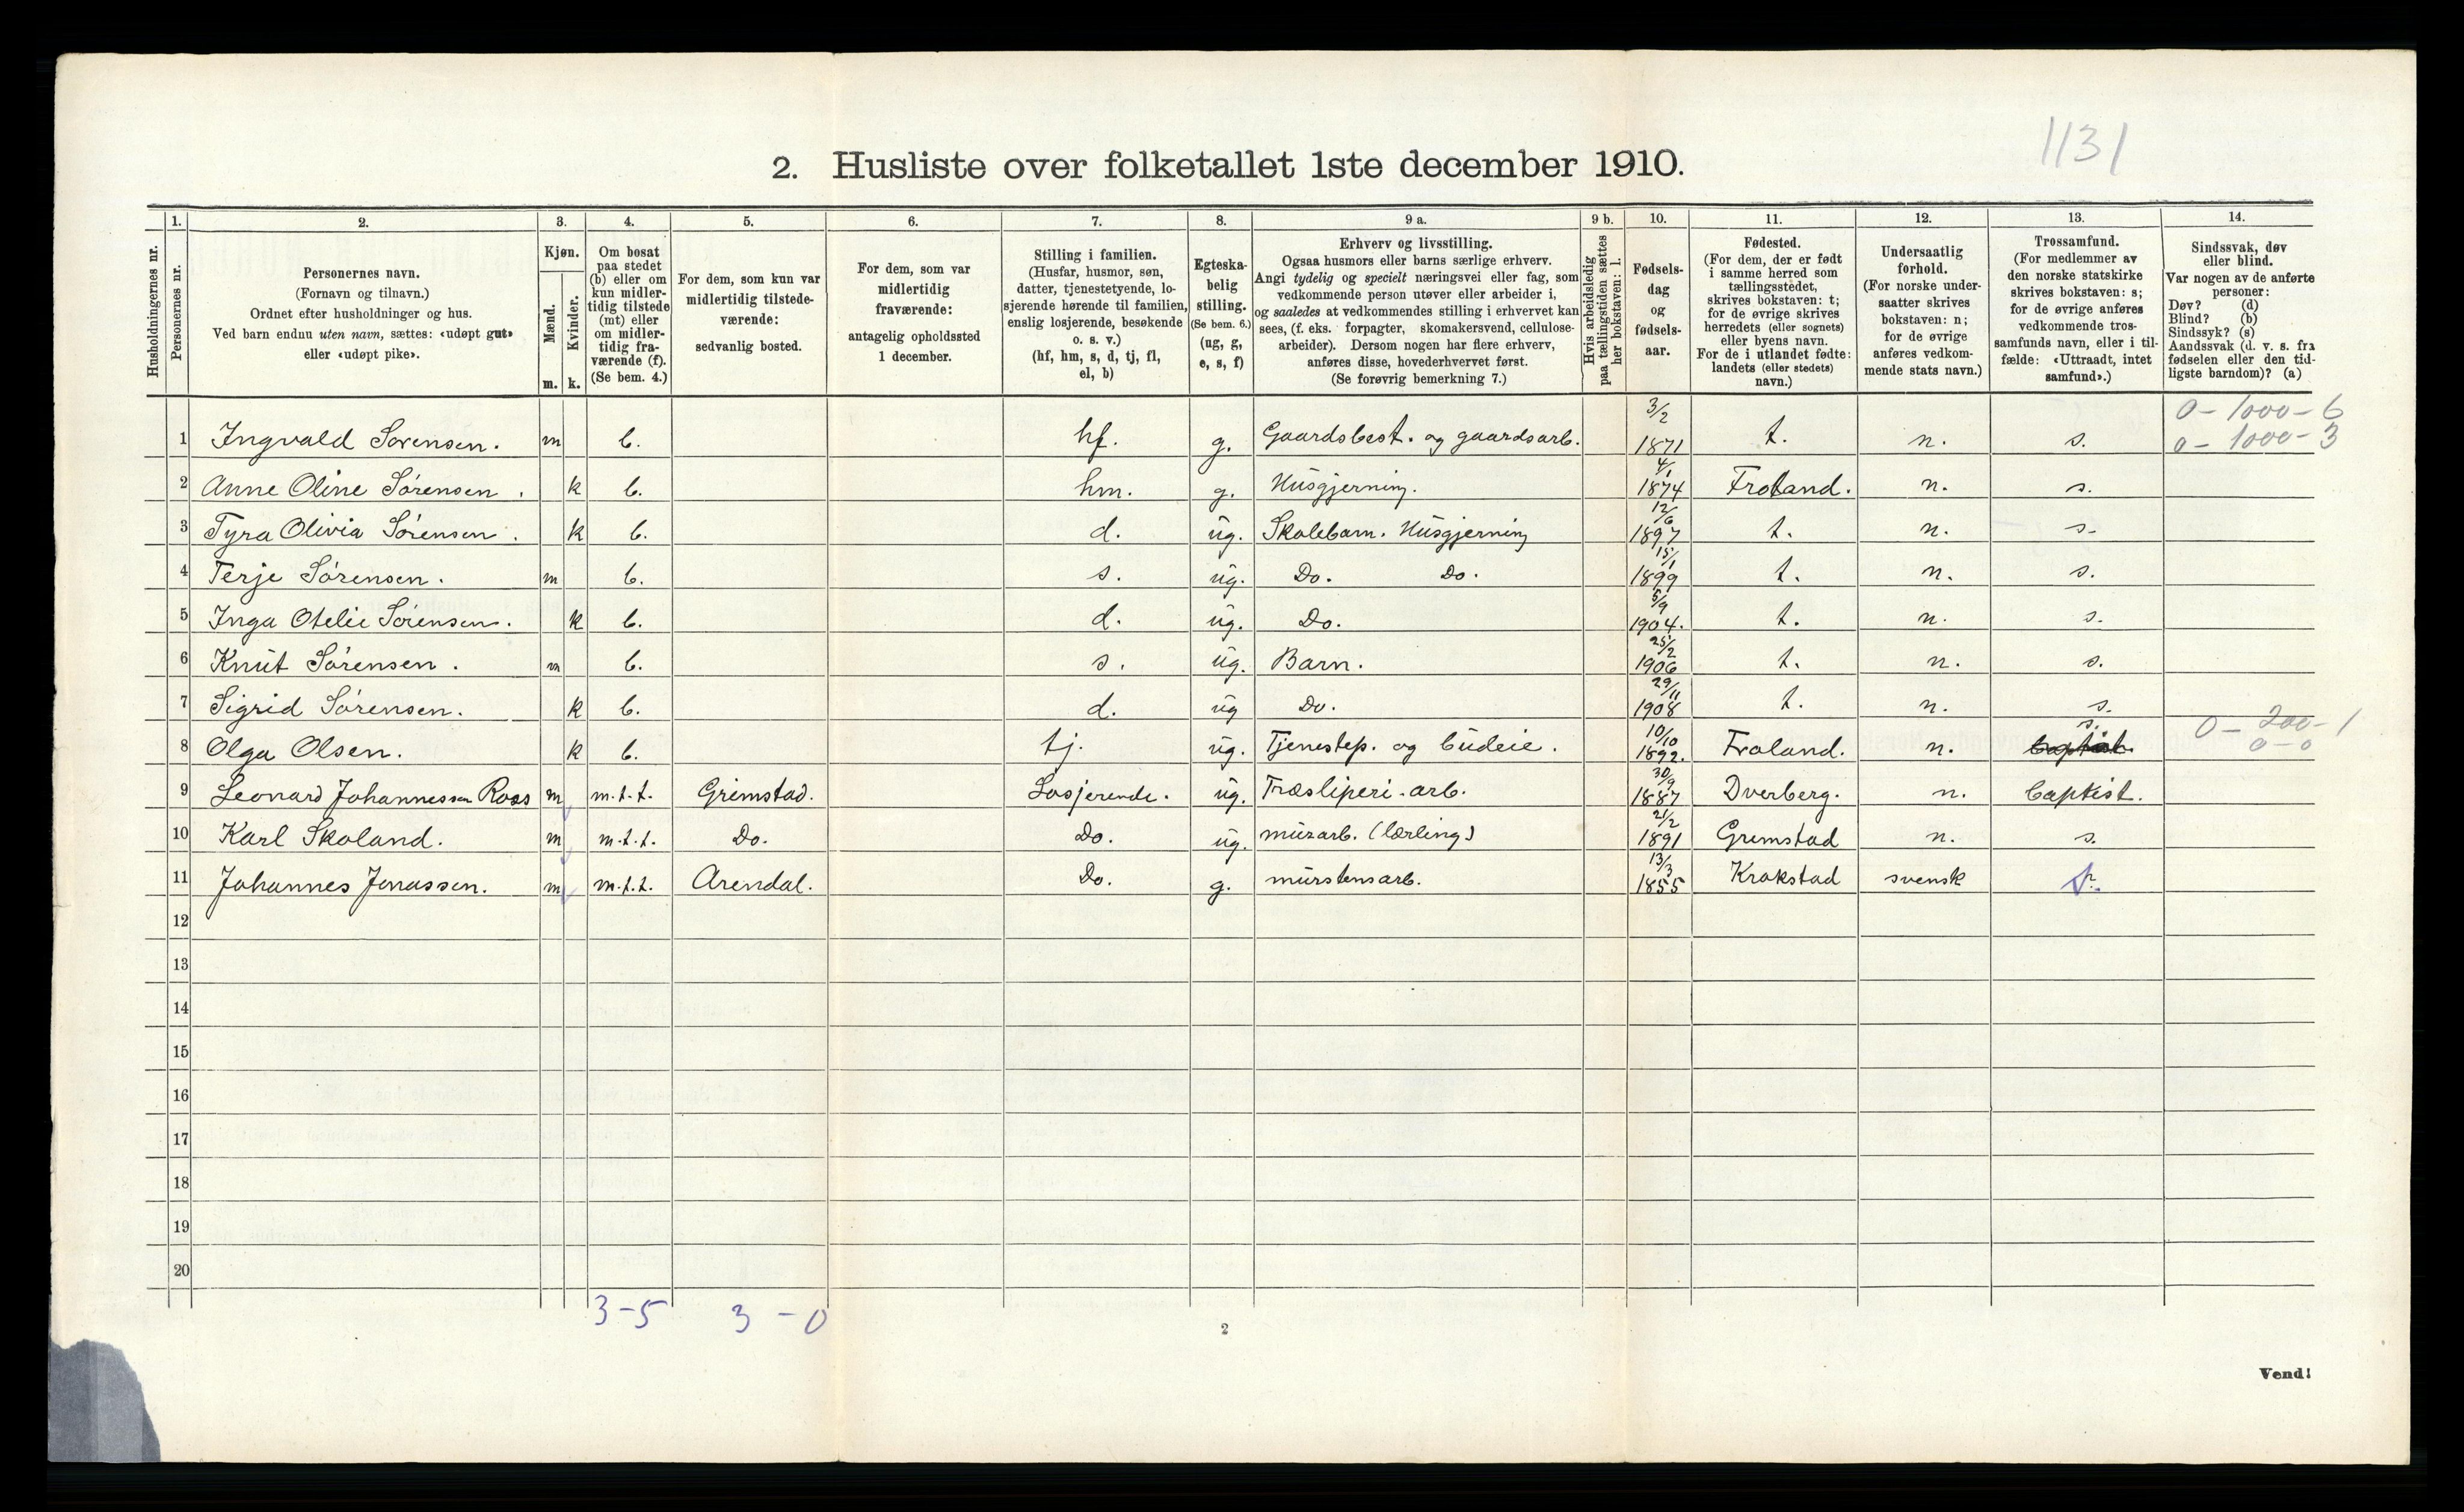 1131
2. Husliste over folketallet 1ste december 1910.
Husholdningernes nr.
1. Personernes nr.
2. Personernes navn.
(Fornavn og tilnavn.)
Ordnet efter husholdninger og hus.
Ved barn endnu uten navn, sættes: «udøpt gut»
eller «udøpt pike».
3. Kjøn.
Mænd. m.
Kvinder. k.
4. Om bosat
paa stedet
(b) eller om
kun midler-
tidig tilstede
(mt) eller
om midler-
tidig fra-
værende (f).
(Se bem. 4.)
5. For dem, som kun var
midlertidig tilstede-
værende:
sedvanlig bosted.
6. For dem, som var
midlertidig
fraværende:
antagelig opholdssted
1 december.
7. Stilling i familien.
(Husfar, husmor, søn,
datter, tjenestetyende, lo-
sjerende hørende til familien,
enslig losjerende, besøkende
o. s. v.)
(hf, hm, s, d, tj, fl,
el, b)
8. Egteska-
belig
stilling.
(Se bem. 6.)
(ug, g,
e, s, f)
9 a. Erhverv og livsstilling.
Ogsaa husmors eller barns særlige erhverv.
Angi tydelig og specielt næringsvei eller fag, som
vedkommende person utøver eller arbeider i,
og saaledes at vedkommendes stilling i erhvervet kan
sees, (f. eks. forpagter, skomakersvend, cellulose-
arbeider). Dersom nogen har flere erhverv,
anføres disse, hovederhvervet først.
(Se forøvrig bemerkning 7.)
9 b. Hvis arbeidsledig
paa tællingstiden sættes
her bokstaven: l.
10. Fødsels-
dag
og
fødsels-
aar.
11. Fødested.
(For dem, der er født
i samme herred som
tællingsstedet,
skrives bokstaven: t;
for de øvrige skrives
herredets (eller sognets)
eller byens navn.
For de i utlandet fødte:
landets (eller stedets)
navn.)
12. Undersaatlig
forhold.
(For norske under-
saatter skrives
bokstaven: n;
for de øvrige
anføres vedkom-
mende stats navn.)
13. Trossamfund.
(For medlemmer av
den norske statskirke
skrives bokstaven: s;
for de øvrige anføres
vedkommende tros-
samfunds navn, eller i til-
fælde: «Uttraadt, intet
samfund».)
14. Sindssvak, døv
eller blind.
Var nogen av de anførte
personer:
Døv? (d)
Blind? (b)
Sindssyk? (s)
Aandssvak (d. v. s. fra
fødselen eller den tid-
ligste barndom)? (a)
1 Ingvald Sørensen. m b. hf. g. Gaardsbest. og gaardsarb. 3/2 1871 t. n. s. 0 - 1000 - 6
0 - 1000 - 3
2 Anne Oline Sørensen. k b. hm. g. Husgjerning. 4/1 1874 Froland. n. s.
3 Tyra Olivia Sørensen. k b. d. ug. Skolebarn. Husgjerning 12/6 1897 t. n. s.
4 Terje Sørensen. m b. s. ug. Do. Do. 15/1 1899 t. n. s.
5 Inga Otelie Sørensen. k b. d. ug. Do. 5/9 1904. t. n. s.
6 Knut Sørensen. m b. s. ug. Barn. 25/2 1906 t. n. s.
7 Sigrid Sørensen. k b. d. ug Do. 29/11 1908 t. n. s.
8 Olga Olsen. k b. tj. ug. Tjenestep. og budeie. 10/10 1892. Froland. n. baptist. s. 0 - 200 - 1
0 - 0
9 Leonard Johannessen Roos m m.t.t. Grimstad. Losjerende. ug. Træsliperi-arb. 30/9 1887 Dverberg. n. baptist.
10 Karl Skoland. m m.t.t. Do. Do. ug. murarb. (lærling) 21/2 1891 Grimstad n. s.
11 Johannes Jonassen. m m.t.t. Arendal. Do. g. murstensarb. 13/3 1855 Krokstad svensk
12
13
14
15
16
17
18
19
20
3-5 3-0
2
Vend!